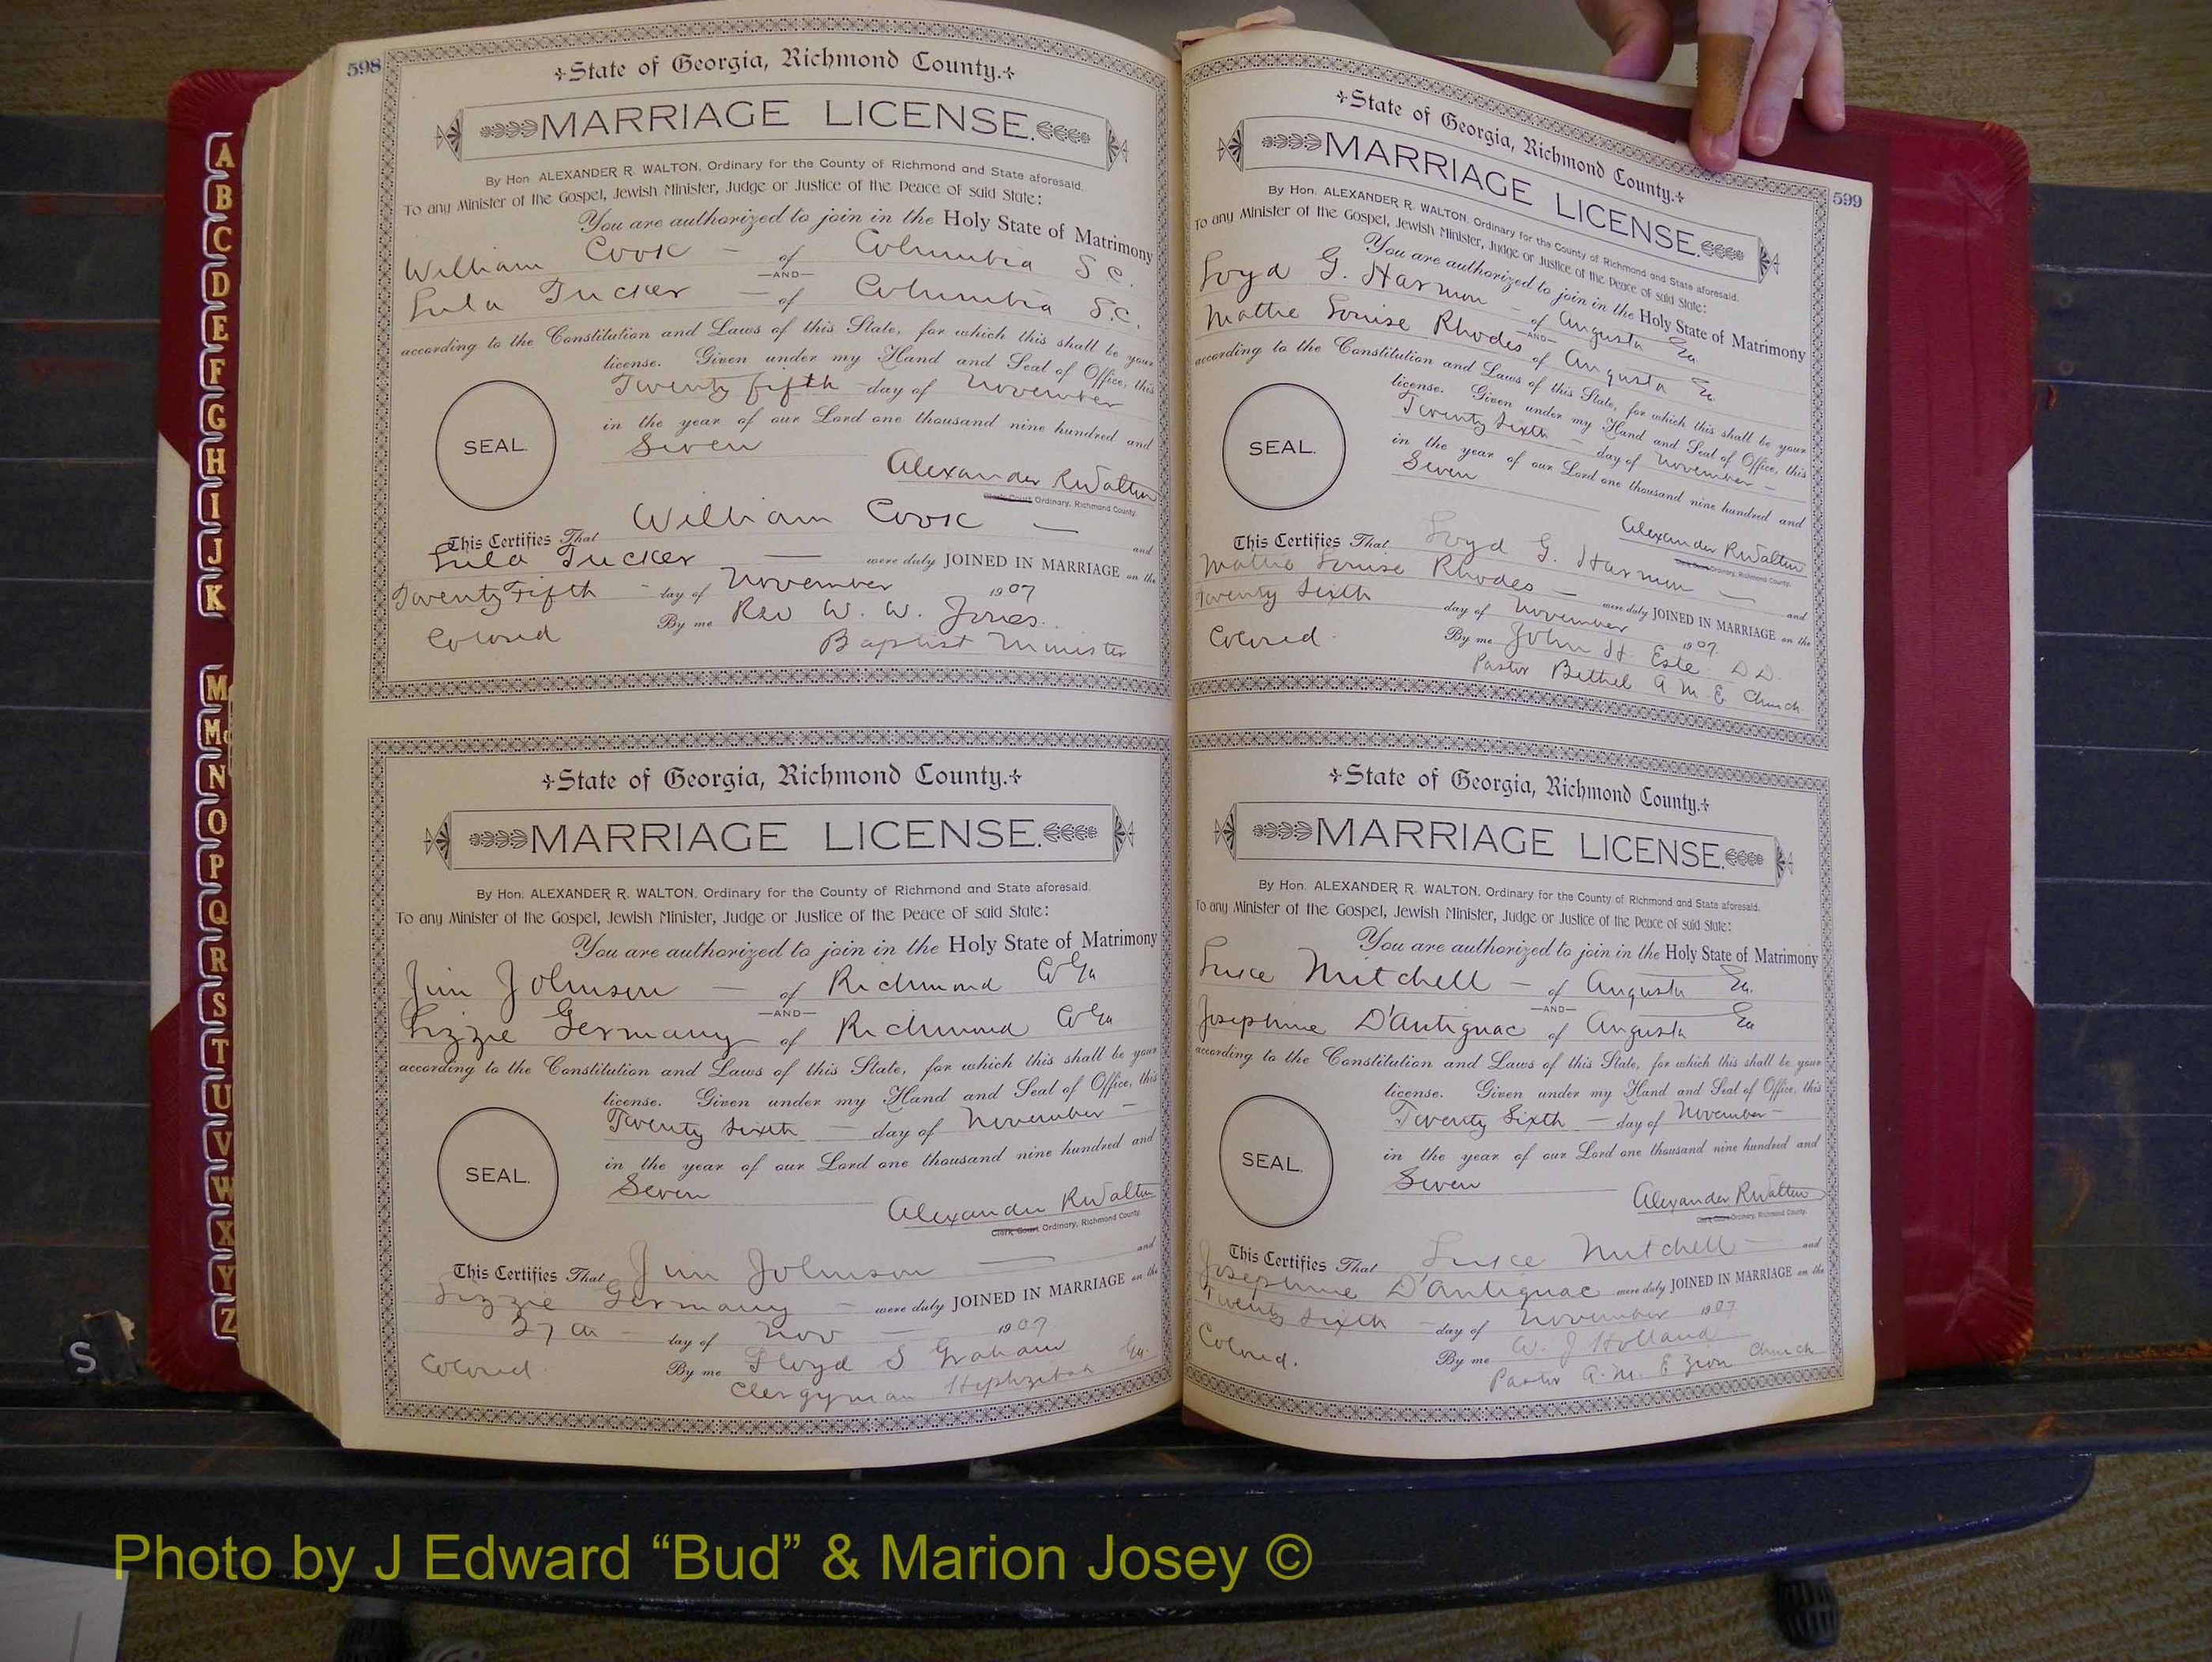 598
State of Georgia, Richmond County.
MARRIAGE LICENSE.
By Hon. ALEXANDER R. WALTON, Ordinary for the County of Richmond and State aforesaid.
To any Minister of the Gospel, Jewish Minister, Judge or Justice of the Peace of said State:
You are authorized to join in the Holy State of Matrimony
William Cook — of Columbia S.C.
—AND—
Lula Tucker — of Columbia S.C.
according to the Constitution and Laws of this State, for which this shall be your
license. Given under my Hand and Seal of Office, this
Twenty fifth day of November
in the year of our Lord one thousand nine hundred and
Seven
SEAL.
Alexander R Walton
Clerk Court Ordinary, Richmond County.
This Certifies That William Cook — and
Lula Tucker — were duly JOINED IN MARRIAGE on the
Twenty Fifth - day of November 1907
By me Rev W. W. Jones.
Colored Baptist Minister
State of Georgia, Richmond County.
MARRIAGE LICENSE.
By Hon. ALEXANDER R. WALTON, Ordinary for the County of Richmond and State aforesaid.
To any Minister of the Gospel, Jewish Minister, Judge or Justice of the Peace of said State:
You are authorized to join in the Holy State of Matrimony
Jim Johnson — of Richmond Co Ga
—AND—
Lizzie Germany of Richmond Co Ga
according to the Constitution and Laws of this State, for which this shall be your
license. Given under my Hand and Seal of Office, this
Twenty Sixth — day of November —
in the year of our Lord one thousand nine hundred and
Seven
SEAL.
Alexander R Walton
Clerk, Court Ordinary, Richmond County.
This Certifies That Jim Johnson — and
Lizzie Germany — were duly JOINED IN MARRIAGE on the
27th — day of Nov — 1907
Colored. By me Floyd S Graham
Clergyman Hephzibah Ga.
599
State of Georgia, Richmond County.
MARRIAGE LICENSE.
By Hon. ALEXANDER R. WALTON, Ordinary for the County of Richmond and State aforesaid.
To any Minister of the Gospel, Jewish Minister, Judge or Justice of the Peace of said State:
You are authorized to join in the Holy State of Matrimony
Loyd G. Harmon — of Augusta Ga.
—AND—
Mattie Louise Rhodes of Augusta Ga.
according to the Constitution and Laws of this State, for which this shall be your
license. Given under my Hand and Seal of Office, this
Twenty Sixth — day of November —
in the year of our Lord one thousand nine hundred and
Seven
SEAL.
Alexander R Walton
Clerk, Court Ordinary, Richmond County.
This Certifies That Loyd G. Harmon — and
Mattie Louise Rhodes — were duly JOINED IN MARRIAGE on the
Twenty Sixth day of November 1907.
Colored. By me John H. D.D.
Pastor Bethel A. M. E Church
State of Georgia, Richmond County.
MARRIAGE LICENSE.
By Hon. ALEXANDER R. WALTON, Ordinary for the County of Richmond and State aforesaid.
To any Minister of the Gospel, Jewish Minister, Judge or Justice of the Peace of said State:
You are authorized to join in the Holy State of Matrimony
Mitchell — of Augusta Ga.
—AND—
Josephine D'Antignac of Augusta Ga
according to the Constitution and Laws of this State, for which this shall be your
license. Given under my Hand and Seal of Office, this
Twenty Sixth — day of November —
in the year of our Lord one thousand nine hundred and
Seven
SEAL.
Alexander R Walton
Clerk, Court Ordinary, Richmond County.
This Certifies That Mitchell — and
Josephine D'Antignac were duly JOINED IN MARRIAGE on the
Twenty Sixth — day of November 1907
Colored. By me W. J Holland
Pastor A. M. E Zion Church
A
B
C
D
E
F
G
H
I
J
K
M
Mc
N
O
P
Q
R
S
T
U
V
W
X
Y
Z
S
Photo by J Edward “Bud” & Marion Josey ©